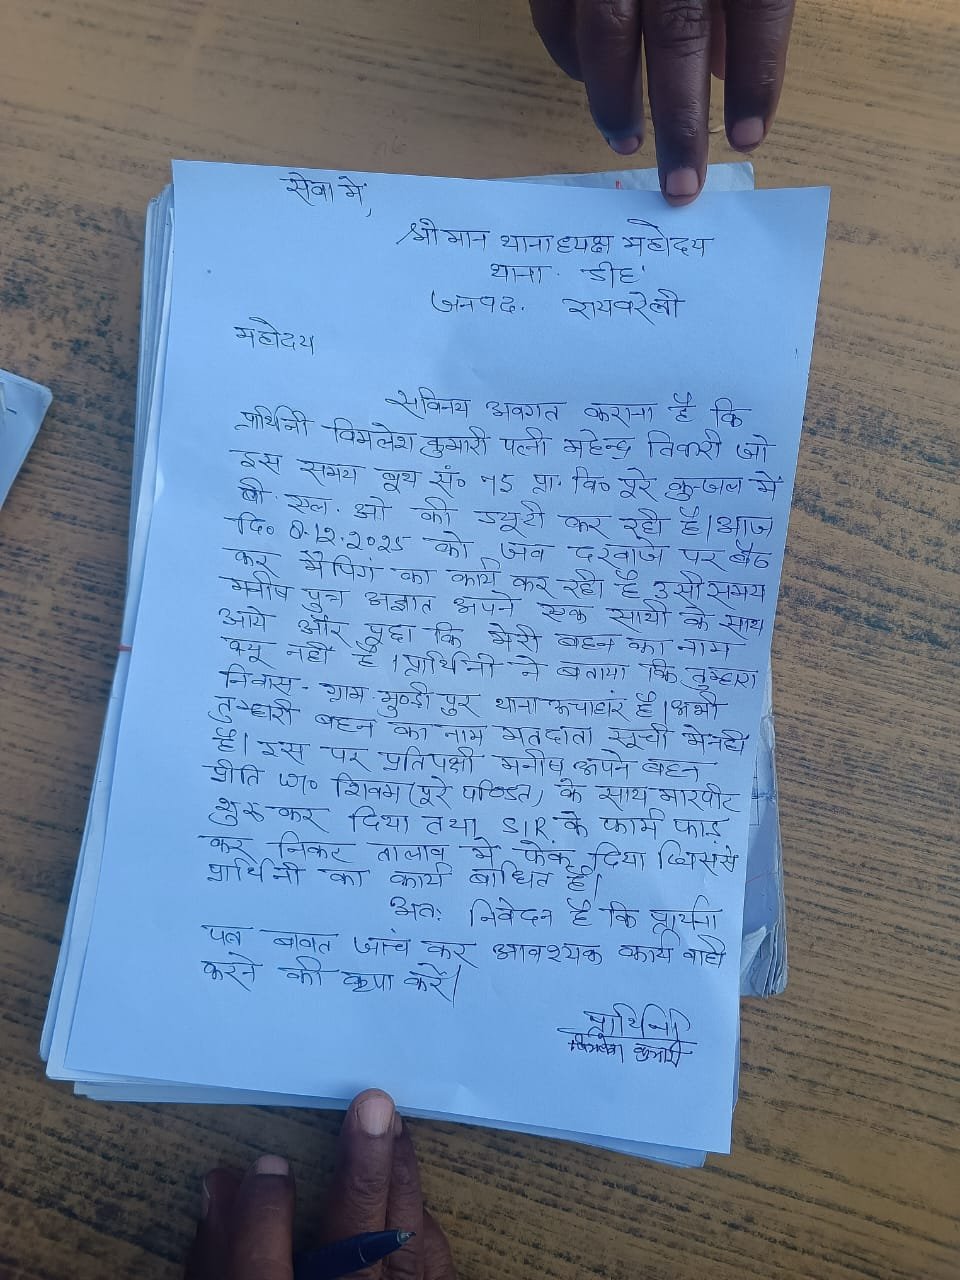 सेवा में,
श्रीमान थानाध्यक्ष महोदय
थाना. डीह
जनपद. रायबरेली
महोदय
सविनय अवगत कराना है कि
प्रार्थिनी विमलेश कुमारी पत्नी महेन्द्र तिवारी जो
इस समय बूथ सं० 75 प्रा. वि० पूरे कुन्जल में
बी. एल. ओ की ड्यूटी कर रही है। आज
दि० 8.12.2025 को जब दरवाजे पर बैठ
कर मैपिंग का कार्य कर रही है उसी समय
मनीष पुत्र अज्ञात अपने एक साथी के साथ
आये और पूछा कि मेरी बहन का नाम
क्यू नहीं है। प्रार्थिनी ने बताया कि तुम्हारा
निवास - ग्राम थाना है। अभी
तुम्हारी बहन का नाम मतदाता सूची मे नही
है। इस पर प्रतिपक्षी मनीष अपने बहन
प्रीति W/o शिवम (पूरे पण्डित) के साथ मारपीट
शुरू कर दिया तथा SIR के फार्म फाड़
कर निकट तालाब मे फेंक दिया जिससे
प्रार्थिनी का कार्य बाधित है।
अतः निवेदन है कि प्रार्थना
पत्र बावत जांच कर आवश्यक कार्यवाही
करने की कृपा करें।
प्रार्थिनी
कुमारी